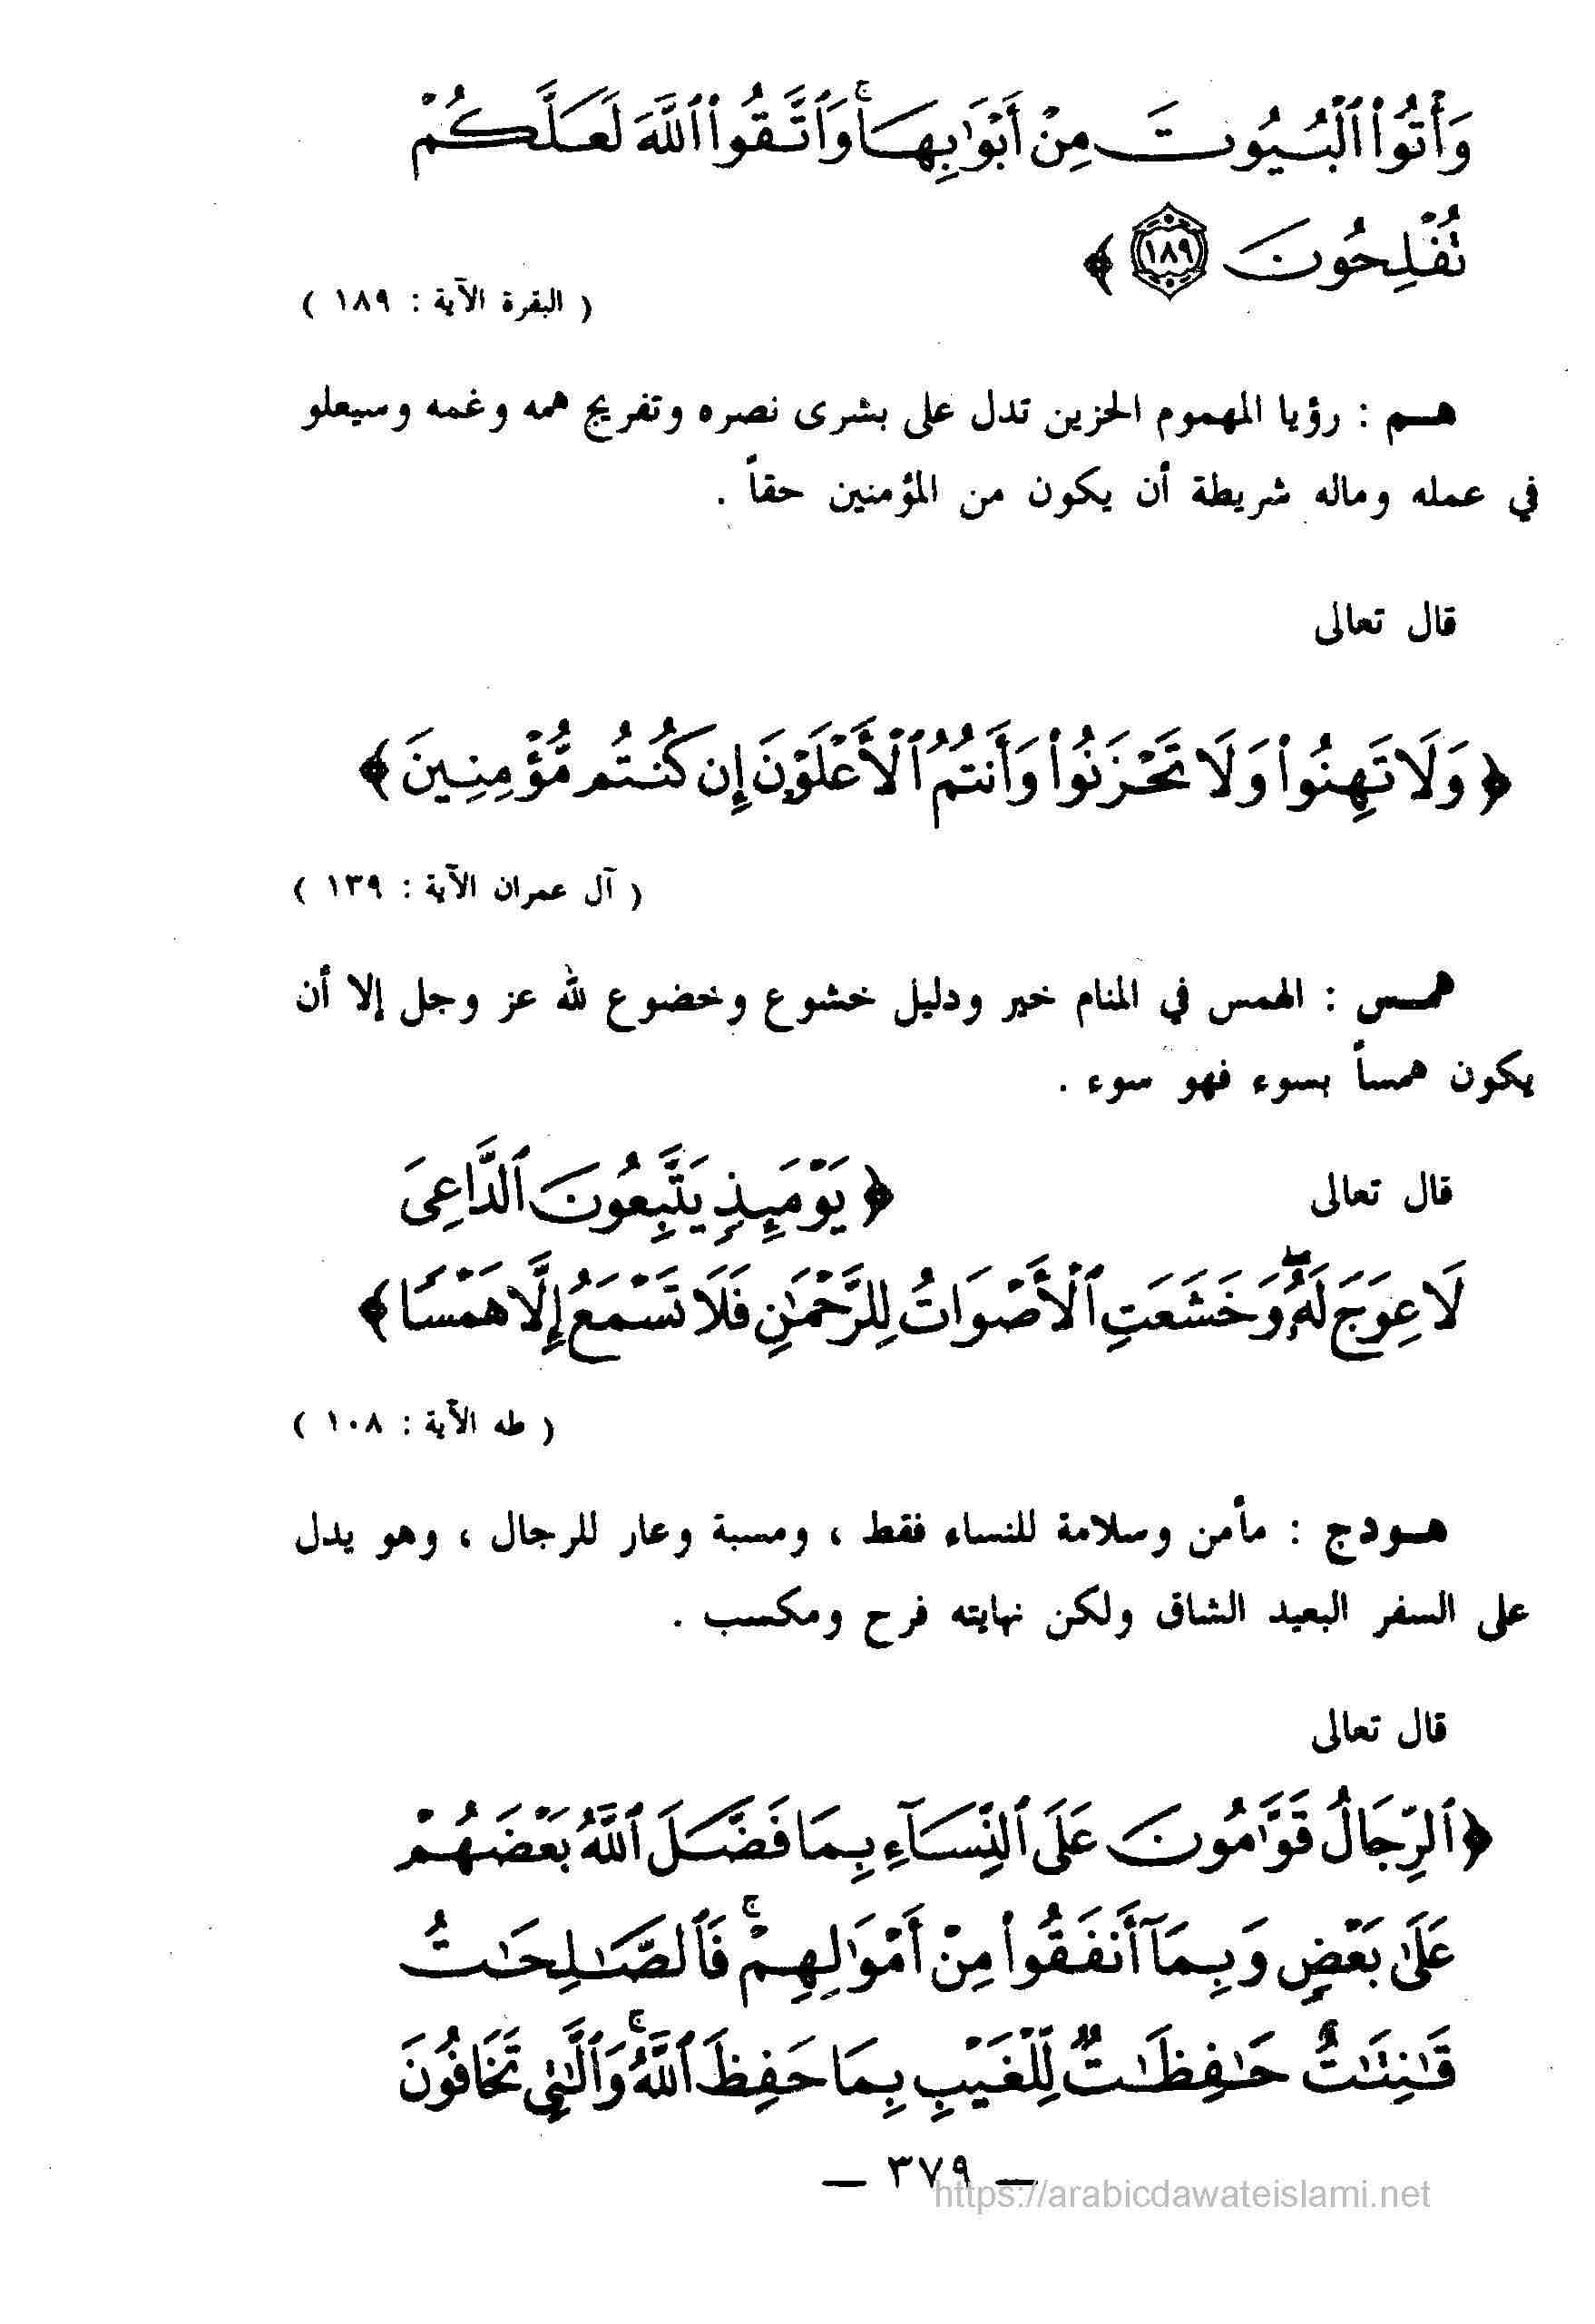 وَأْتُوا۟ ٱلْبُيُوتَ مِنْ أَبْوَٰبِهَا ۚ وَٱتَّقُوا۟ ٱللَّهَ لَعَلَّكُمْ
تُفْلِحُونَ ١٨٩ ﴾
( البقرة الآية : ١٨٩ )
هـم : رؤيا المهموم الحزين تدل على بشرى نصره وتفريج همه وغمه وسيعلو
في عمله وماله شريطة أن يكون من المؤمنين حقاً .
قال تعالى
﴿ وَلَا تَهِنُوا۟ وَلَا تَحْزَنُوا۟ وَأَنتُمُ ٱلْأَعْلَوْنَ إِن كُنتُم مُّؤْمِنِينَ ﴾
( آل عمران الآية : ١٣٩ )
همـس : الهمس في المنام خير ودليل خشوع وخضوع لله عز وجل إلا أن
يكون همساً بسوء فهو سوء .
قال تعالى ﴿ يَوْمَئِذٍ يَتَّبِعُونَ ٱلدَّاعِىَ
لَا عِوَجَ لَهُۥ ۖ وَخَشَعَتِ ٱلْأَصْوَاتُ لِلرَّحْمَٰنِ فَلَا تَسْمَعُ إِلَّا هَمْسًا ﴾
( طه الآية : ١٠٨ )
هـودج : مأمن وسلامة للنساء فقط ، ومسبة وعار للرجال ، وهو يدل
على السفر البعيد الشاق ولكن نهايته فرح ومكسب .
قال تعالى
﴿ ٱلرِّجَالُ قَوَّٰمُونَ عَلَى ٱلنِّسَآءِ بِمَا فَضَّلَ ٱللَّهُ بَعْضَهُمْ
عَلَىٰ بَعْضٍ وَبِمَآ أَنفَقُوا۟ مِنْ أَمْوَٰلِهِمْ ۚ فَٱلصَّٰلِحَٰتُ
قَٰنِتَٰتٌ حَٰفِظَٰتٌ لِّلْغَيْبِ بِمَا حَفِظَ ٱللَّهُ ۚ وَٱلَّٰتِى تَخَافُونَ
— ٣٧٩ —
https://arabicdawateislami.net